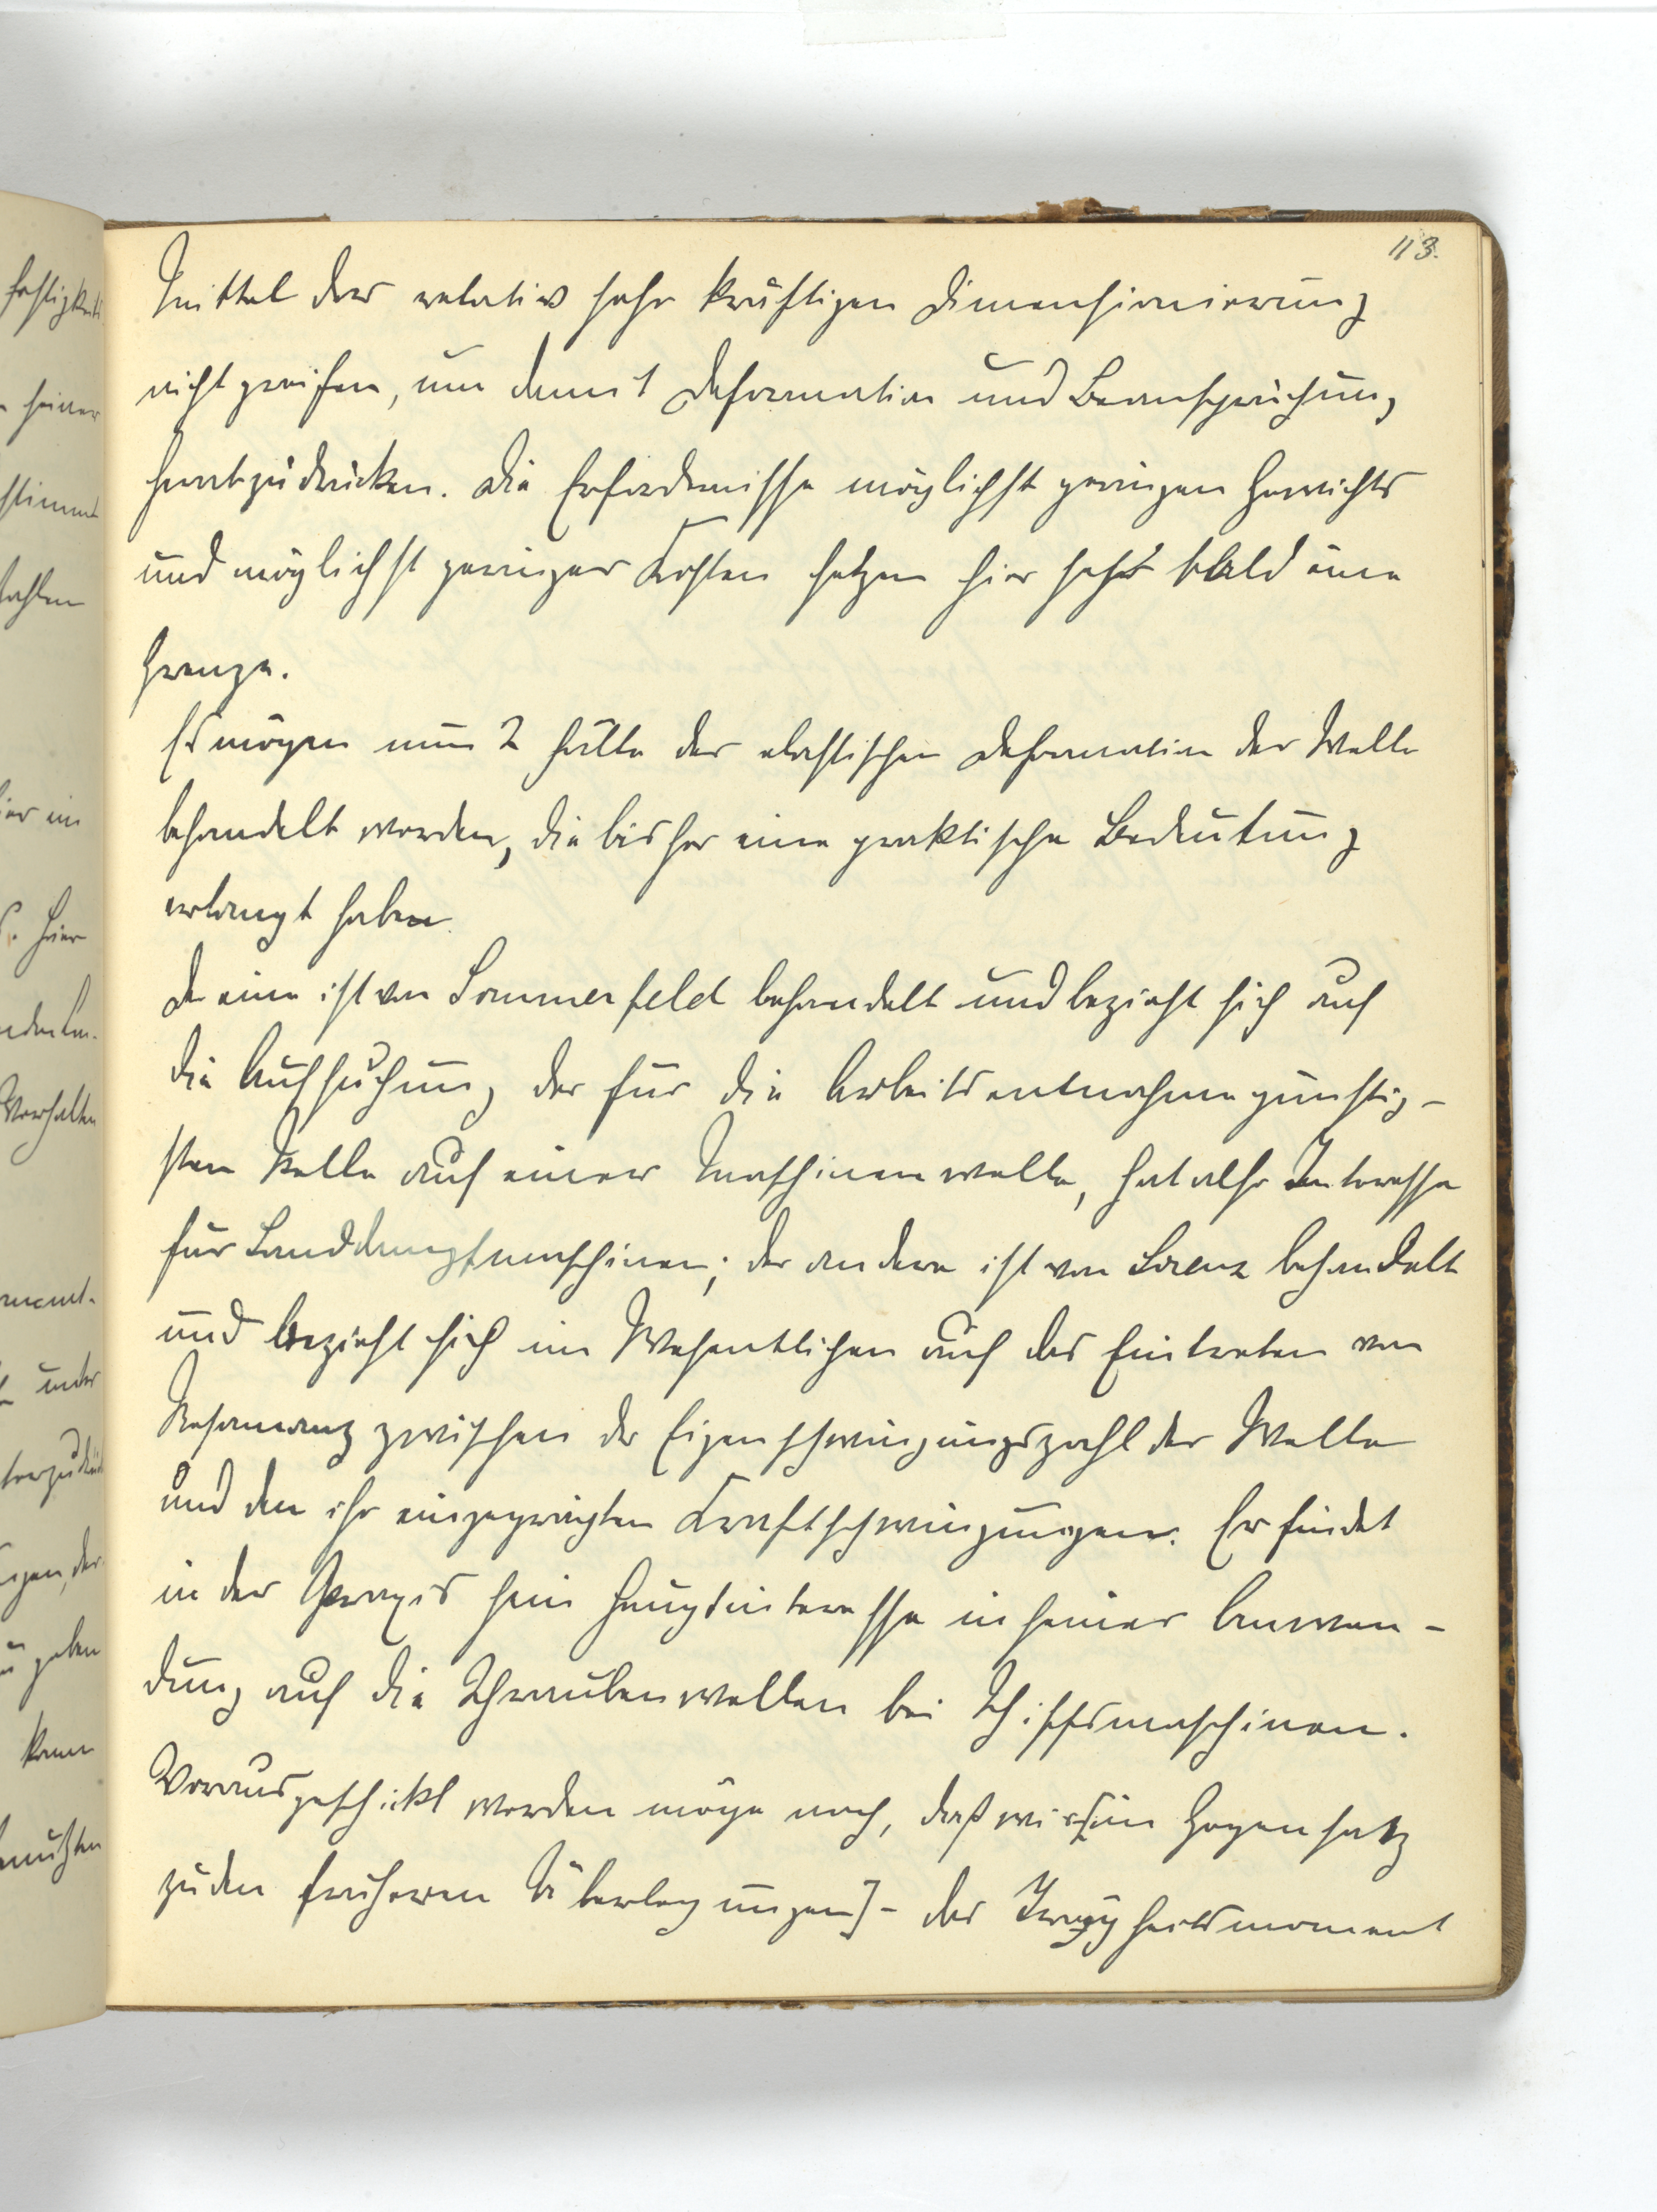 113.
Mittel der relativ sehr kräftigen Dimensionierung
nicht greifen, um damit Deformation und Beanspruchung
herabzudrücken. Die Erfordernisse möglichst geringen Gewichts
und möglichst geringer Kosten setzen hier sehr bald eine
Grenze.
Es mögen nun 2 Fälle der elastischen Deformation der Welle
behandelt werden, die bisher eine praktische Bedeutung
erlangt haben.
Der eine ist von Sommerfeld behandelt und bezieht sich auf
die Aufsuchung der für die Arbeitsentnahme günstig-
sten Stelle auf einer Maschinenwelle, hat also Interesse
für Landdampfmaschinen; der andere ist von Lorenz behandelt
und bezieht sich im Wesentlichen auf das Eintreten von
Resonanz zwischen der Eigenschwingungszahl der Welle
und den ihr eingeprägten Kraftschwingungen. Er findet
in der Praxis sein Hauptinteresse in seiner Anwen-
dung auf die Schraubenwellen bei Schiffsmaschinen.
Vorausgeschickt werden möge noch, daß wir [im Gegensatz
zu den früheren Überlegungen] - das Trägheitsmoment